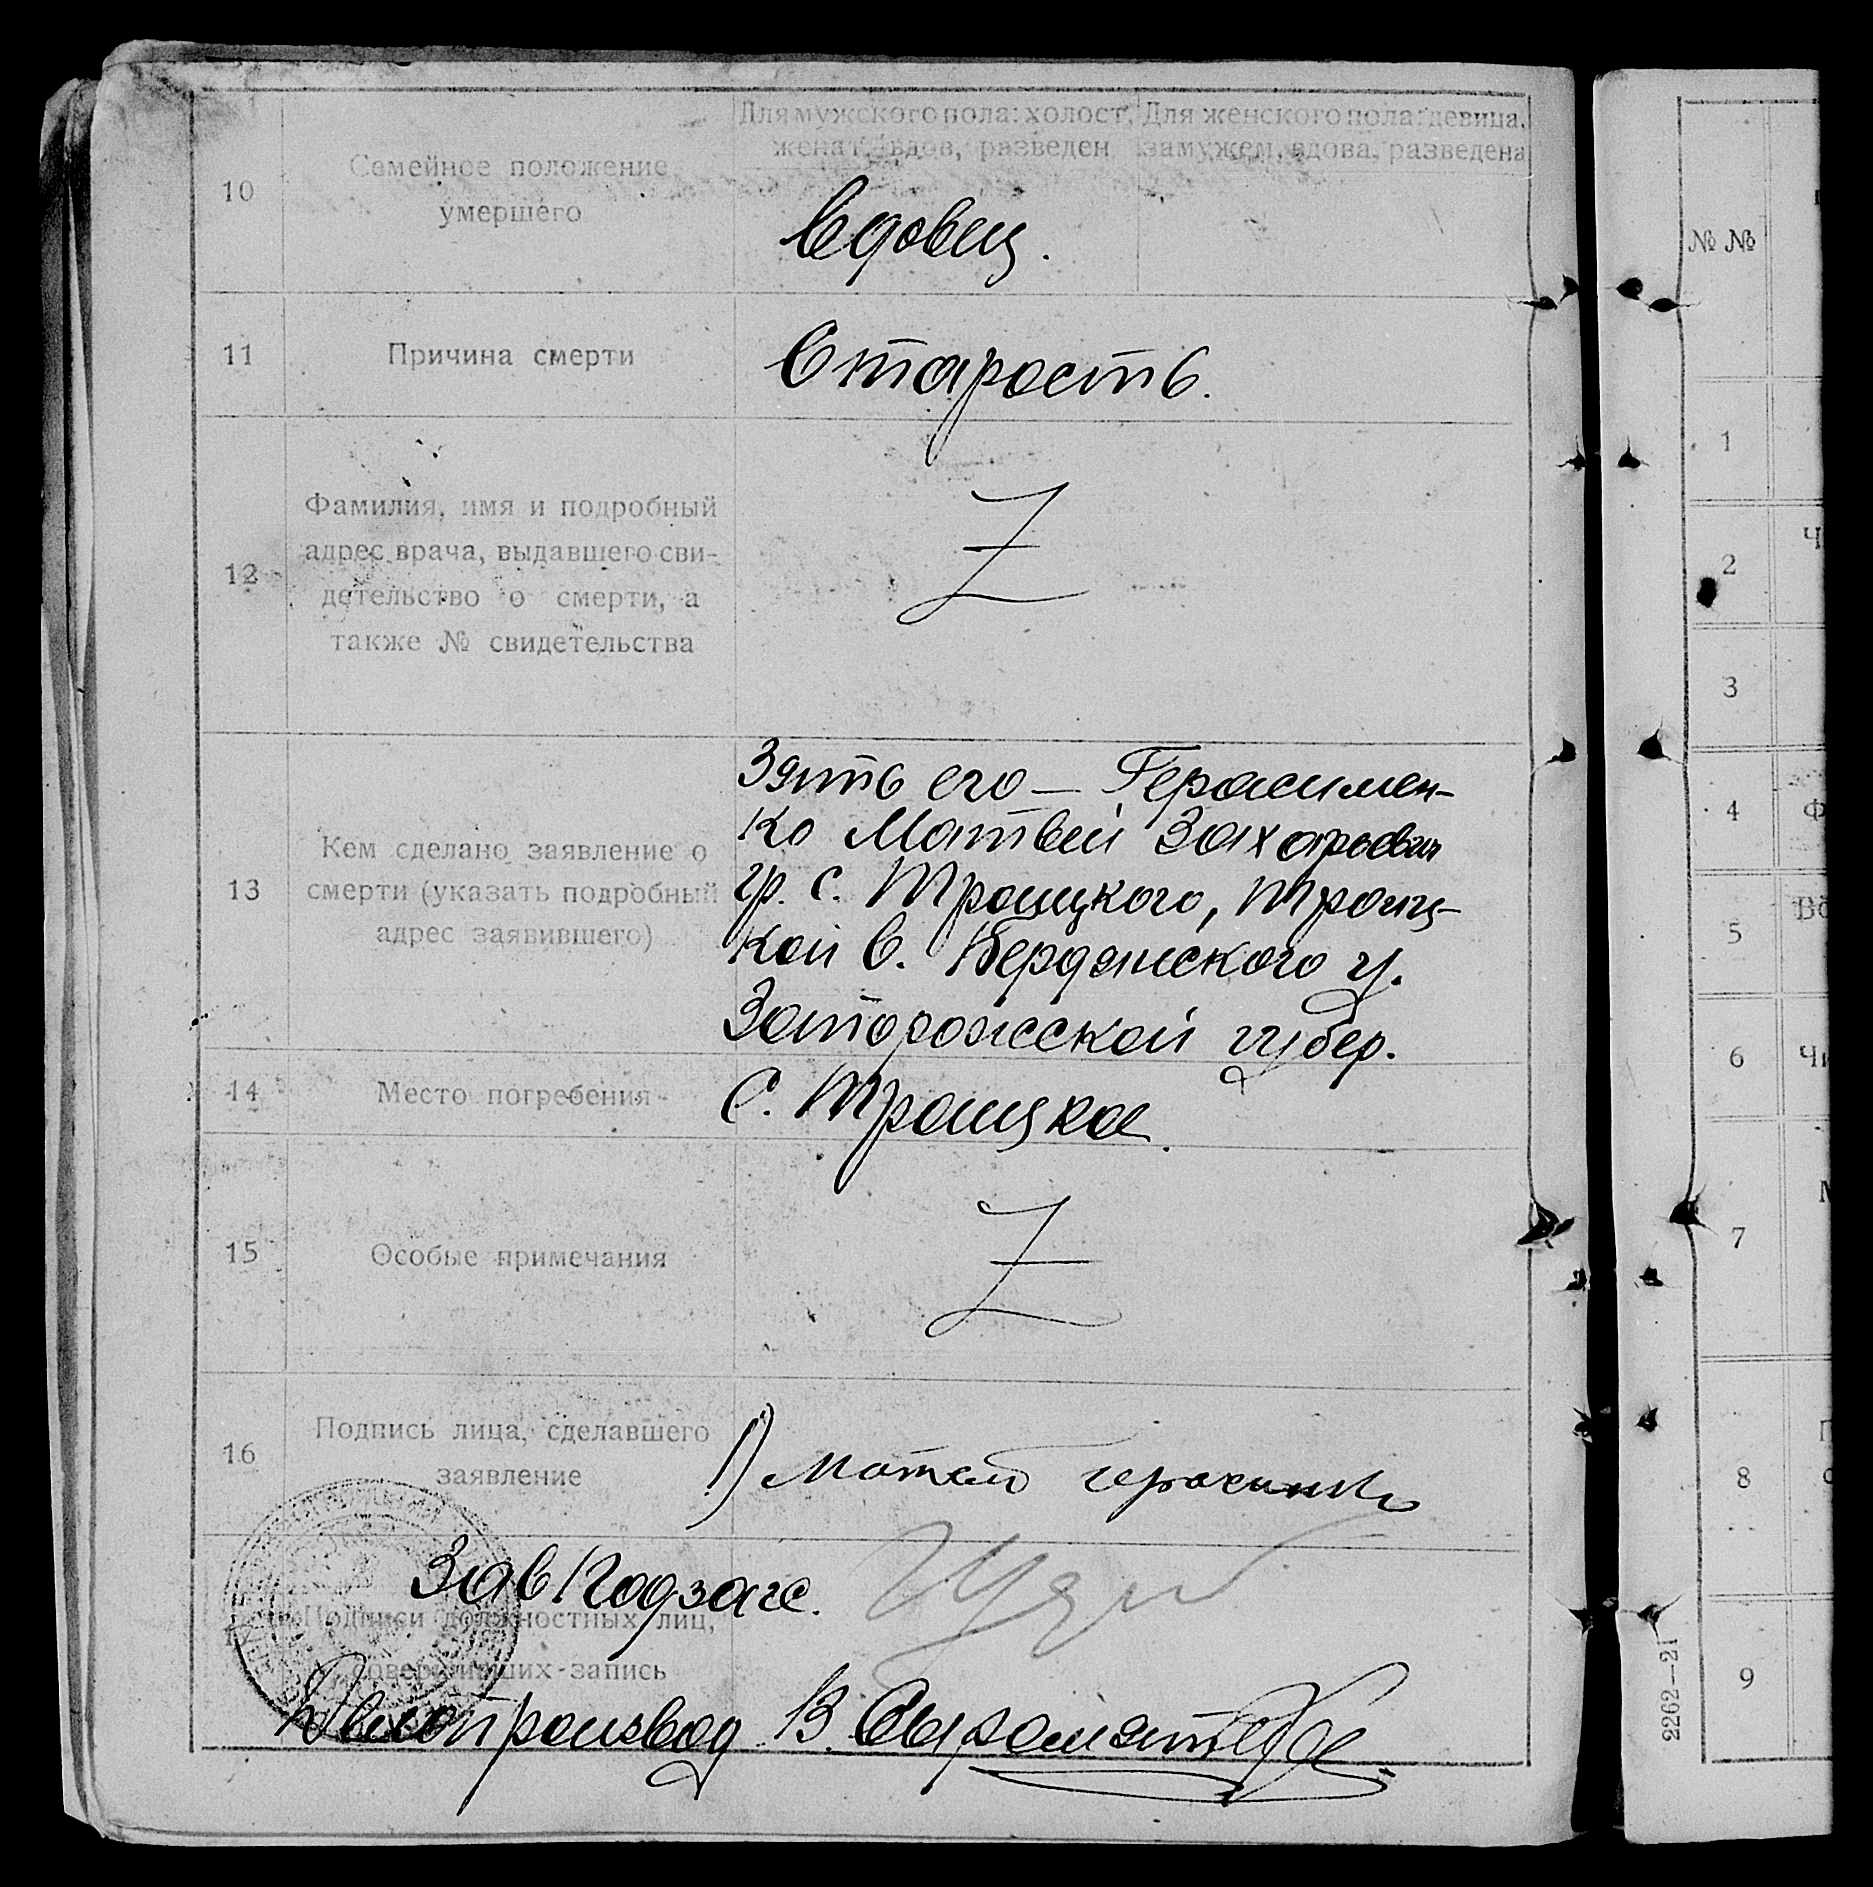 Для мужского пола: холост, женат, вдов, разведен
Для женского пола: девица, замужем, вдова, разведена
10
Семейное положение
умершего
Вдовец.
11
Причина смерти
Старость.
12
Фамилия, имя и подробный
адрес врача, выдавшего сви-
детельство о смерти, а
также № свидетельства
Z
13
Кем сделано заявление о
смерти (указать подробный
адрес заявившего)
Зять его — Герасимен-
ко Матвей Захарьевич
гр. с. Троицкого, Троиц-
кой в. Бердянского у.
Запорожской губер.
14
Место погребения
С. Троицкое.
15
Особые примечания
Z
16
Подпись лица, сделавшего
заявление
1) Матвей
Зав Подзагс.
Подписи должностных лиц,
совершивших запись
Делопроизвод В.
№ №
1
2
3
4
5
6
7
8
9
2262—21